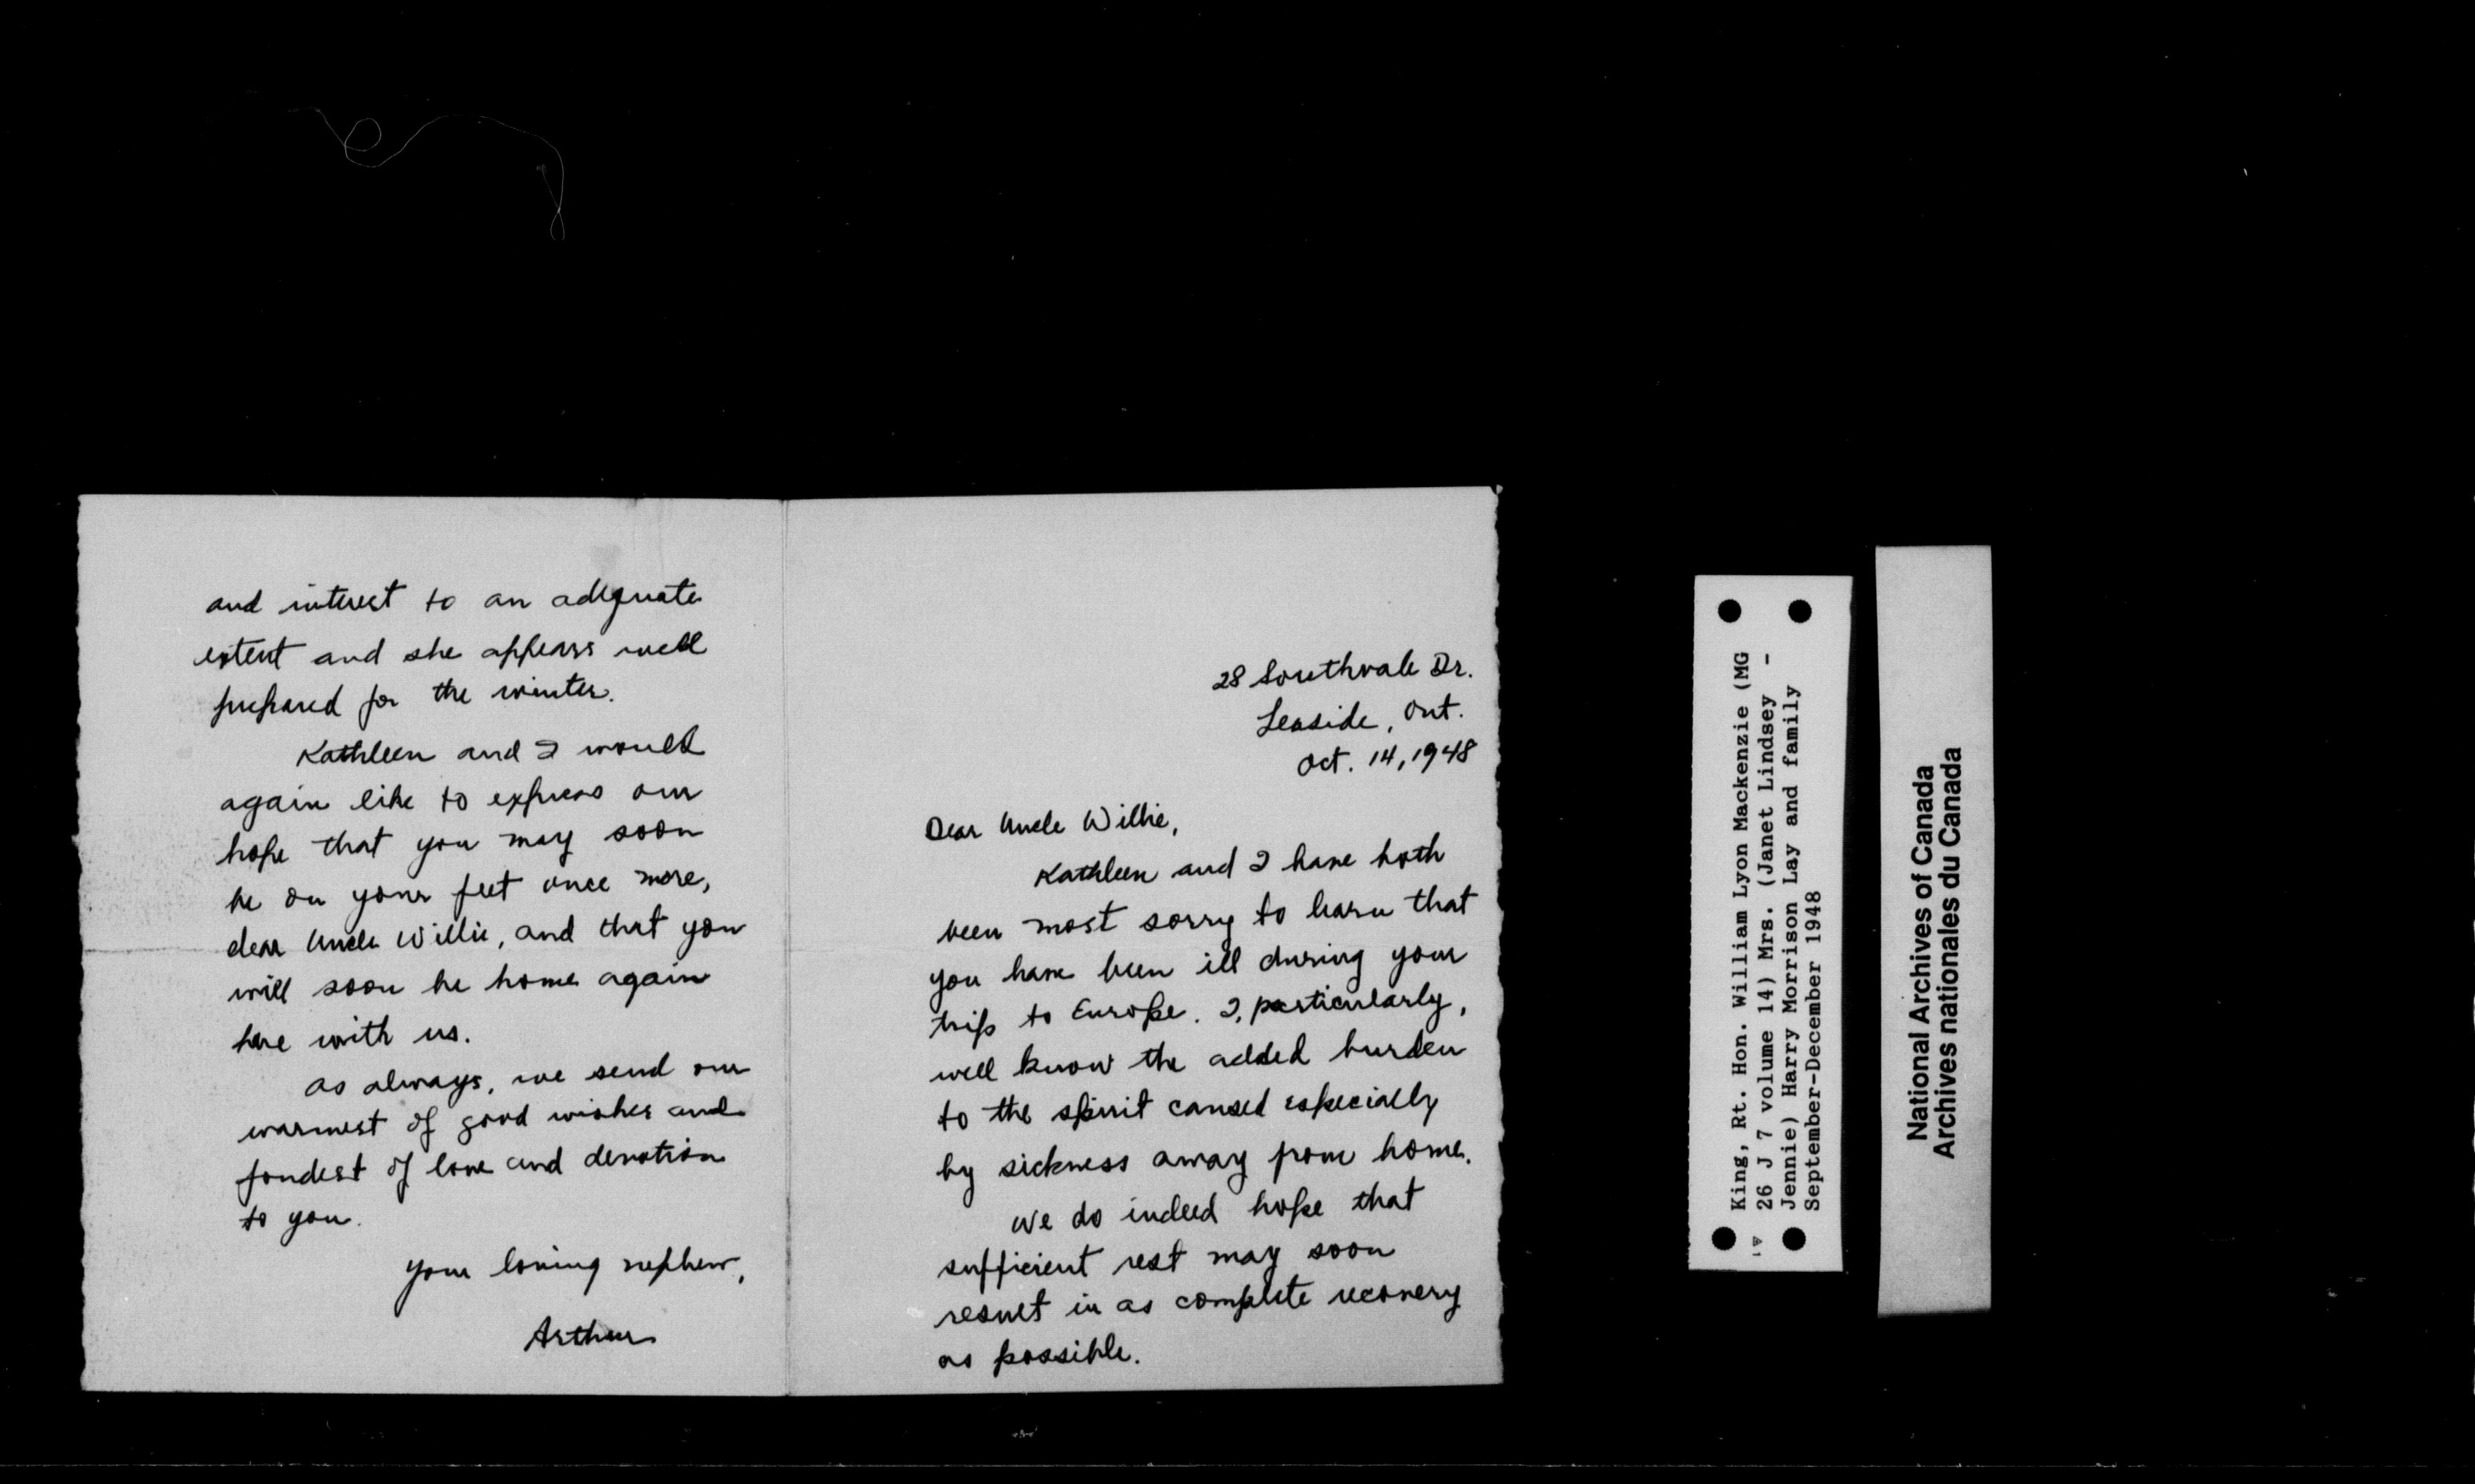 and interest to an adequate
extent and she appears well
prepared for the winter.
Kathleen and I would
again like to express our
hope that you may soon
be on your feet once more,
dear Uncle Willie, and that you
will soon be home again
here with us.
As always, we send our
warmest of good wishes and
fondest of love and devotion
to you.
Your loving nephew,
Arthur
28 Southvale Dr.
Leaside, Ont.
Oct. 14, 1948
Dear Uncle Willie,
Kathleen and I have both
been most sorry to learn that
you have been ill during your
trip to Europe. I, particularly,
well know the added burden
to the spirit caused especially
by sickness away from home.
We do indeed hope that
sufficient rest may soon
result in as complete recovery
as possible.
King, Rt. Hon. William Lyon Mackenzie (MG
26 J 7 volume 14) Mrs. (Janet Lindsey -
Jennie) Harry Morrison Lay and family
September-December 1948
National Archives of Canada
Archives nationales du Canada